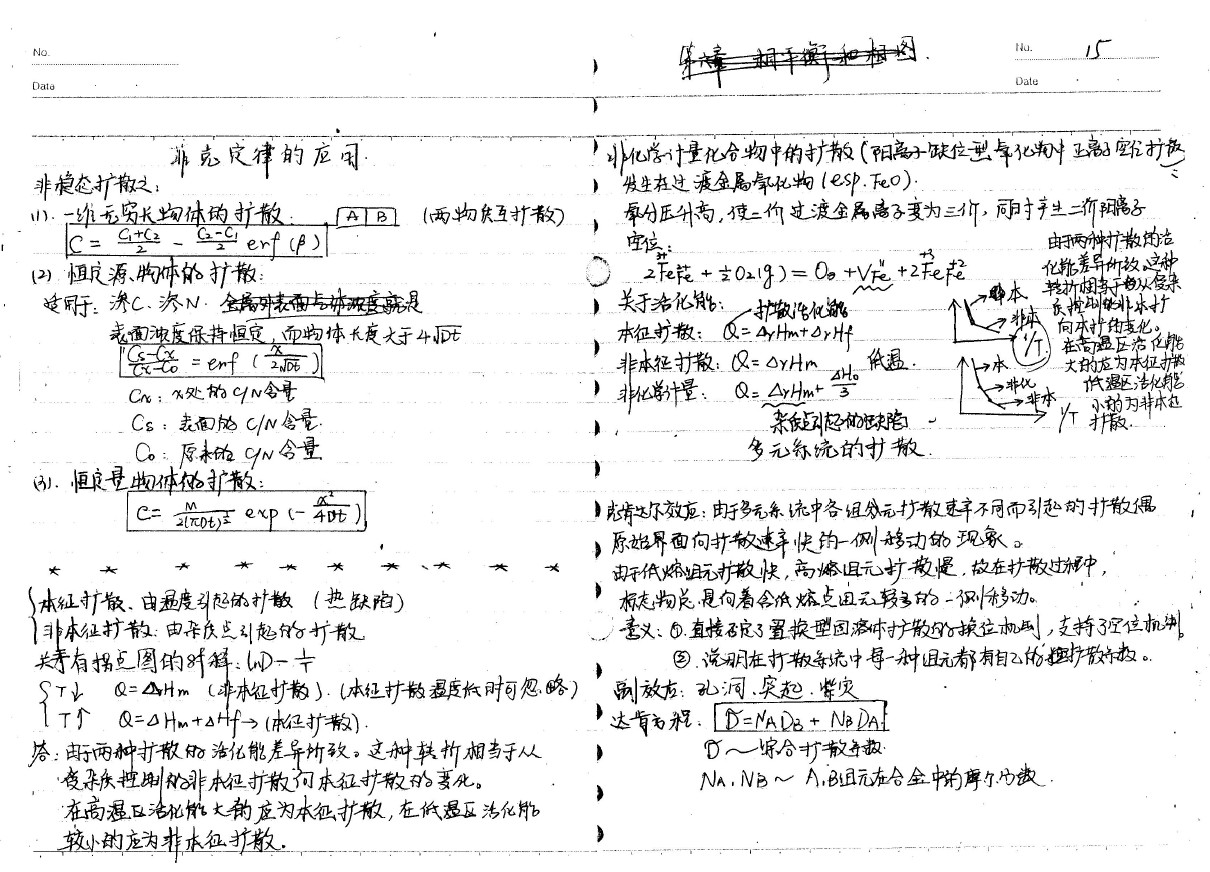 No.
Data
菲克定律的应用.
非稳态扩散之:
(1). 一维无穷长物体的扩散: A B (两物质互扩散)
C = (C1+C2)/2 − (C2−C1)/2 erf(β)
(2) 恒定源物体的扩散:
适用于: 渗C、渗N. 金属外表面与体浓度就是
表面浓度保持恒定, 而物体长度大于4√Dt
(Cs−Cx)/(Cx−C0) = erf (x/(2√Dt))
Cx: x处的C/N含量
Cs: 表面的C/N含量.
C0: 原来的C/N含量
(3). 恒定量物体的扩散:
C = M/(2(πDt)^½) exp(−x²/4Dt)
* * * * * * * * * * *
本征扩散、由温度引起的扩散 (热缺陷)
非本征扩散: 由杂质点引起的扩散
关于有拐点图的解释: lnD − 1/T
T↓ Q=ΔHm (非本征扩散). (本征扩散温度低时可忽略)
T↑ Q=ΔHm+ΔHf→(本征扩散).
答: 由于两种扩散的活化能差异所致。这种转折相当于从
受杂质控制的非本征扩散向本征扩散的变化。
在高温区活化能大的应为本征扩散, 在低温区活化能
较小的应为非本征扩散.
第六章 相平衡和相图.
No. 15
Date
非化学计量化合物中的扩散 (阳离子缺位型氧化物中正离子空位扩散)
发生在过渡金属氧化物 (esp. FeO).
氧分压升高, 使二价过渡金属离子变为三价, 同时产生二价阳离子
空位:
2FeFe + ½O2(g) = Oo + VFe'' + 2FeFe
关于活化能: 扩散活化能
本征扩散: Q=ΔrHm+ΔrHf
非本征扩散: Q=ΔrHm 低温.
非化学计量: Q=ΔrHm+ΔH0/3
杂质点引起的缺陷
本
非本
1/T
本
非化
非本
1/T
由于两种扩散的活
化能差异所致。这种
转折相当于由从受杂
质控制的非本扩
向本扩的变化。
在高温区活化能
大的应为本征扩散
低温区活化能
小的为非本征
扩散.
多元系统的扩散.
肯达尔效应: 由于多元系统中各组分元扩散速率不同而引起的扩散偶
原始界面向扩散速率快的一侧移动的现象。
由于低熔组元扩散快, 高熔组元扩散慢, 故在扩散过程中,
标志物总是向着含低熔点组元较多的一侧移动。
意义: ①. 直接否定了置换型固溶体扩散的换位机制, 支持了空位机制.
②. 说明在扩散系统中每一种组元都有自己的扩散系数。
副效应: 孔洞、突起、
达肯方程. D̃=NADB + NBDA
D̃ ~ 综合扩散系数.
NA, NB ~ A,B组元在合金中的摩尔分数.